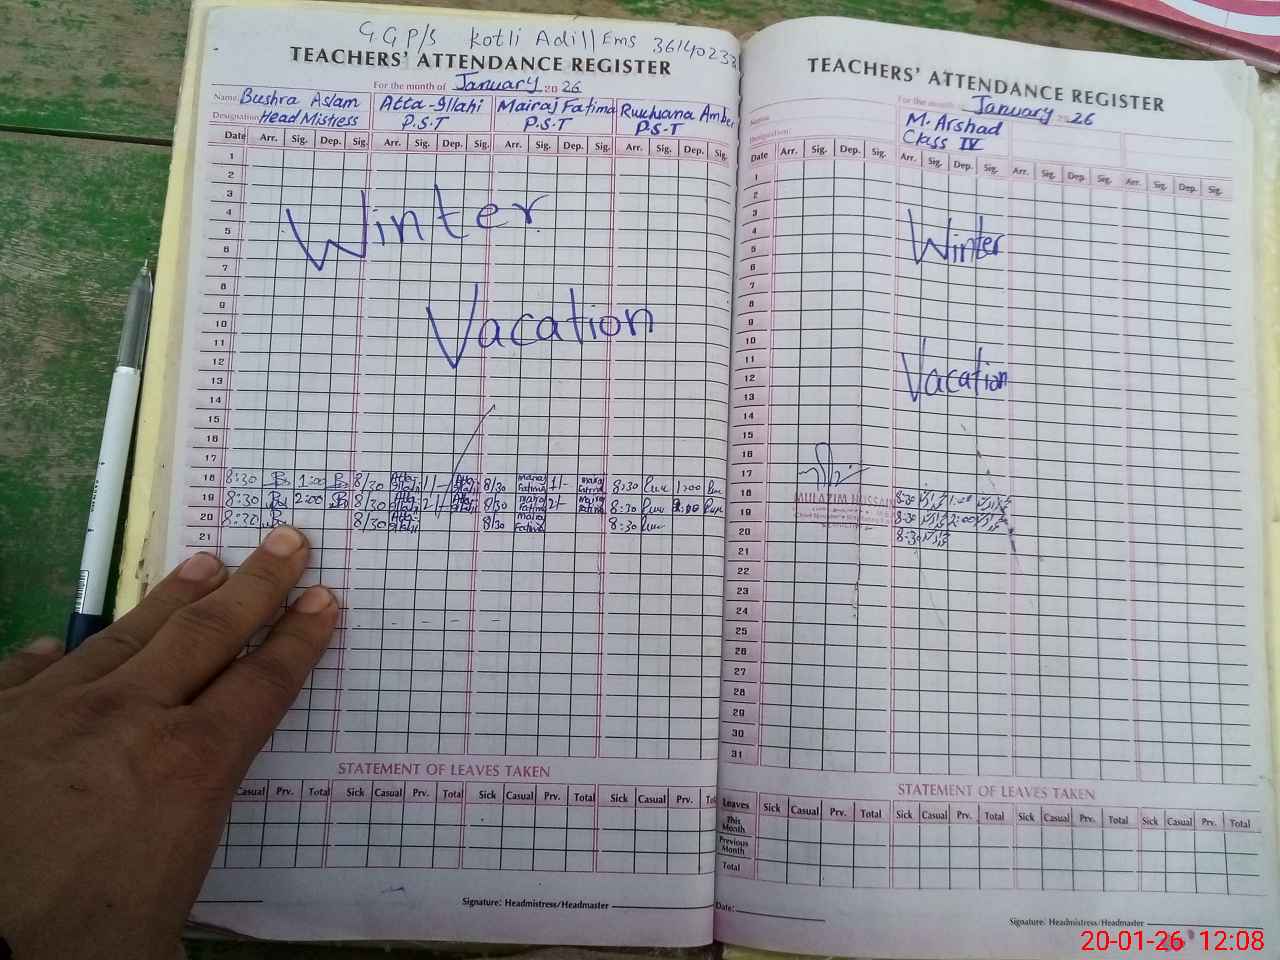 GGP/S Kotli Adill Ems
TEACHERS' ATTENDANCE REGISTER
For the month of January 2026
Name: Bushra Aslam Atta-Illahi Mairaj Fatima
Designation: Head Mistress P.S.T P.S.T P.S.T
Date Arr. Sig. Dep. Sig. Arr. Sig. Dep. Sig. Arr. Sig. Dep. Sig. Arr. Sig. Dep. Sig.
1
2
3
4
5
6
7
8
9
10
11
12
13
14
15
16
17
Winter
Vacation
18 8:30 1:00 8/30 8/30 Mairaj Fatima 1/- 8:30 1:00
19 8:30 2:00 8/30 8/30 Mairaj Fatima 2/- 8:30
20 8:30 8/30 8/30 Mairaj Fatima 8:30
21
STATEMENT OF LEAVES TAKEN
Casual Prv. Total Sick Casual Prv. Total Sick Casual Prv. Total Sick Casual Prv.
Signature: Headmistress/Headmaster
TEACHERS' ATTENDANCE REGISTER
For the month January 2026
Name: M. Arshad
Designation: Class IV
Date Arr. Sig. Dep. Sig. Arr. Sig. Dep. Sig. Arr. Sig. Dep. Sig. Arr. Sig. Dep. Sig.
1
2
3
4
5
6
7
8
9
10
11
12
13
14
15
16
17
Winter
Vacation
MULAZIM HUSSAIN
18 8:30 1:00
19 8:30 2:00
20 8:30
21
22
23
24
25
26
27
28
29
30
31
STATEMENT OF LEAVES TAKEN
Leaves Sick Casual Prv. Total Sick Casual Prv. Total Sick Casual Prv. Total Sick Casual Prv. Total
This Month
Previous Month
Total
Date:
Signature: Headmistress/Headmaster
20-01-26 12:08